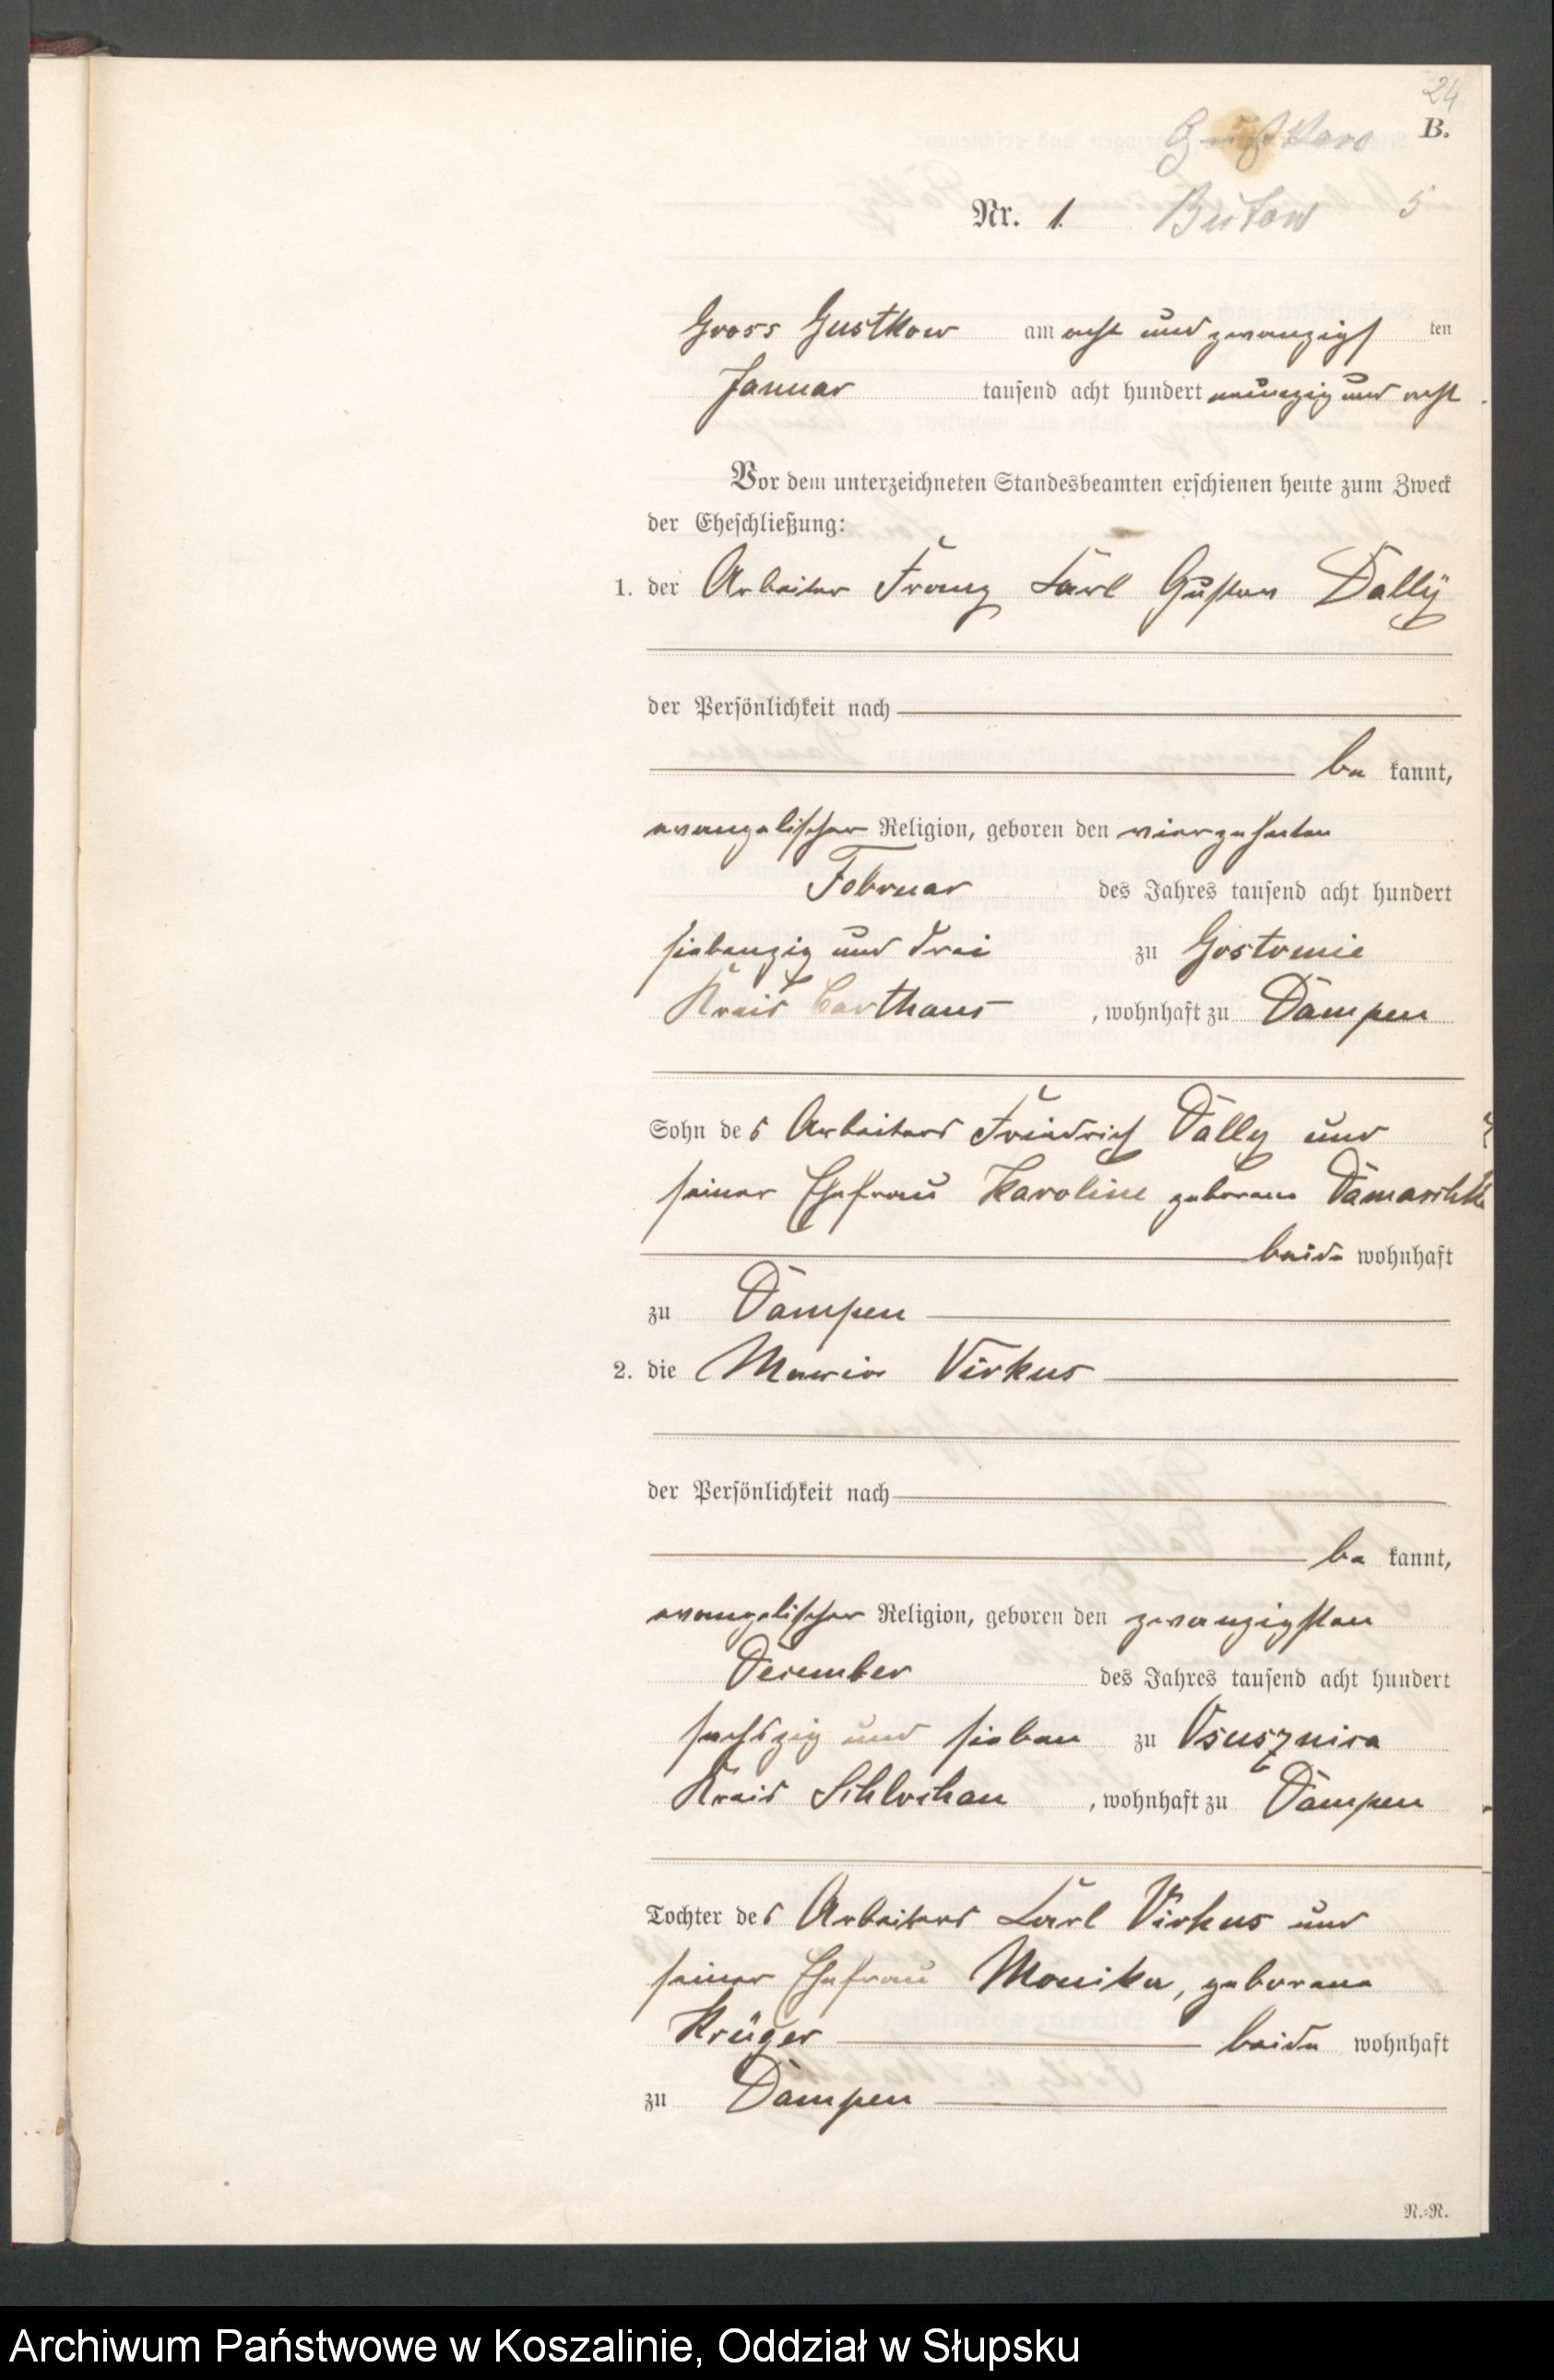 24
B.
Gustkow
Nr. 1. Bütow 5
Gross Gustkow am acht und zwanzigs ten
Januar tausend acht hundert neunzig und acht
Vor dem unterzeichneten Standesbeamten erschienen heute zum Zweck
der Eheschließung:
1. der Arbeiter Franz Karl Gustav Dally
der Persönlichkeit nach
be kannt,
evangelischer Religion, geboren den vierzehnten
Februar des Jahres tausend acht hundert
siebenzig und drei zu Gostomie
Kreis Carthaus, wohnhaft zu Dampen
Sohn des Arbeiters Friedrich Dally und
seiner Ehefrau Karoline geborene Damaschke
beide wohnhaft
zu Dampen
2. die Maria Virkus
der Persönlichkeit nach
be kannt,
evangelischer Religion, geboren den zwanzigsten
December des Jahres tausend acht hundert
sechszig und sieben zu
Kreis Schlochau, wohnhaft zu Dampen
Tochter des Arbeiters Karl Virkus und
seiner Ehefrau Monika, geborene
Krüger beide wohnhaft
zu Dampen
N.=N.
Archiwum Państwowe w Koszalinie, Oddział w Słupsku